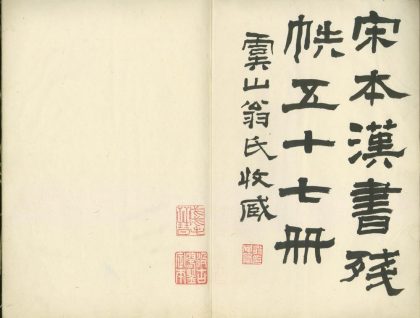 宋本漢書殘
帙五十七冊
虞山翁氏收藏